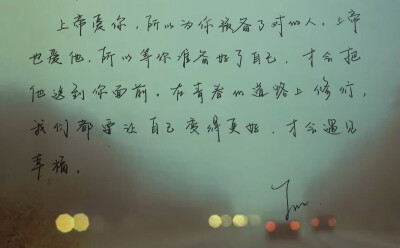 上帝爱你，所以为你预备了对的人，上帝
也爱他，所以等你准备好了自己，才会把
他送到你面前。在青春的道路上修行，
我们都要让自己变得更好，才会遇见
幸福。